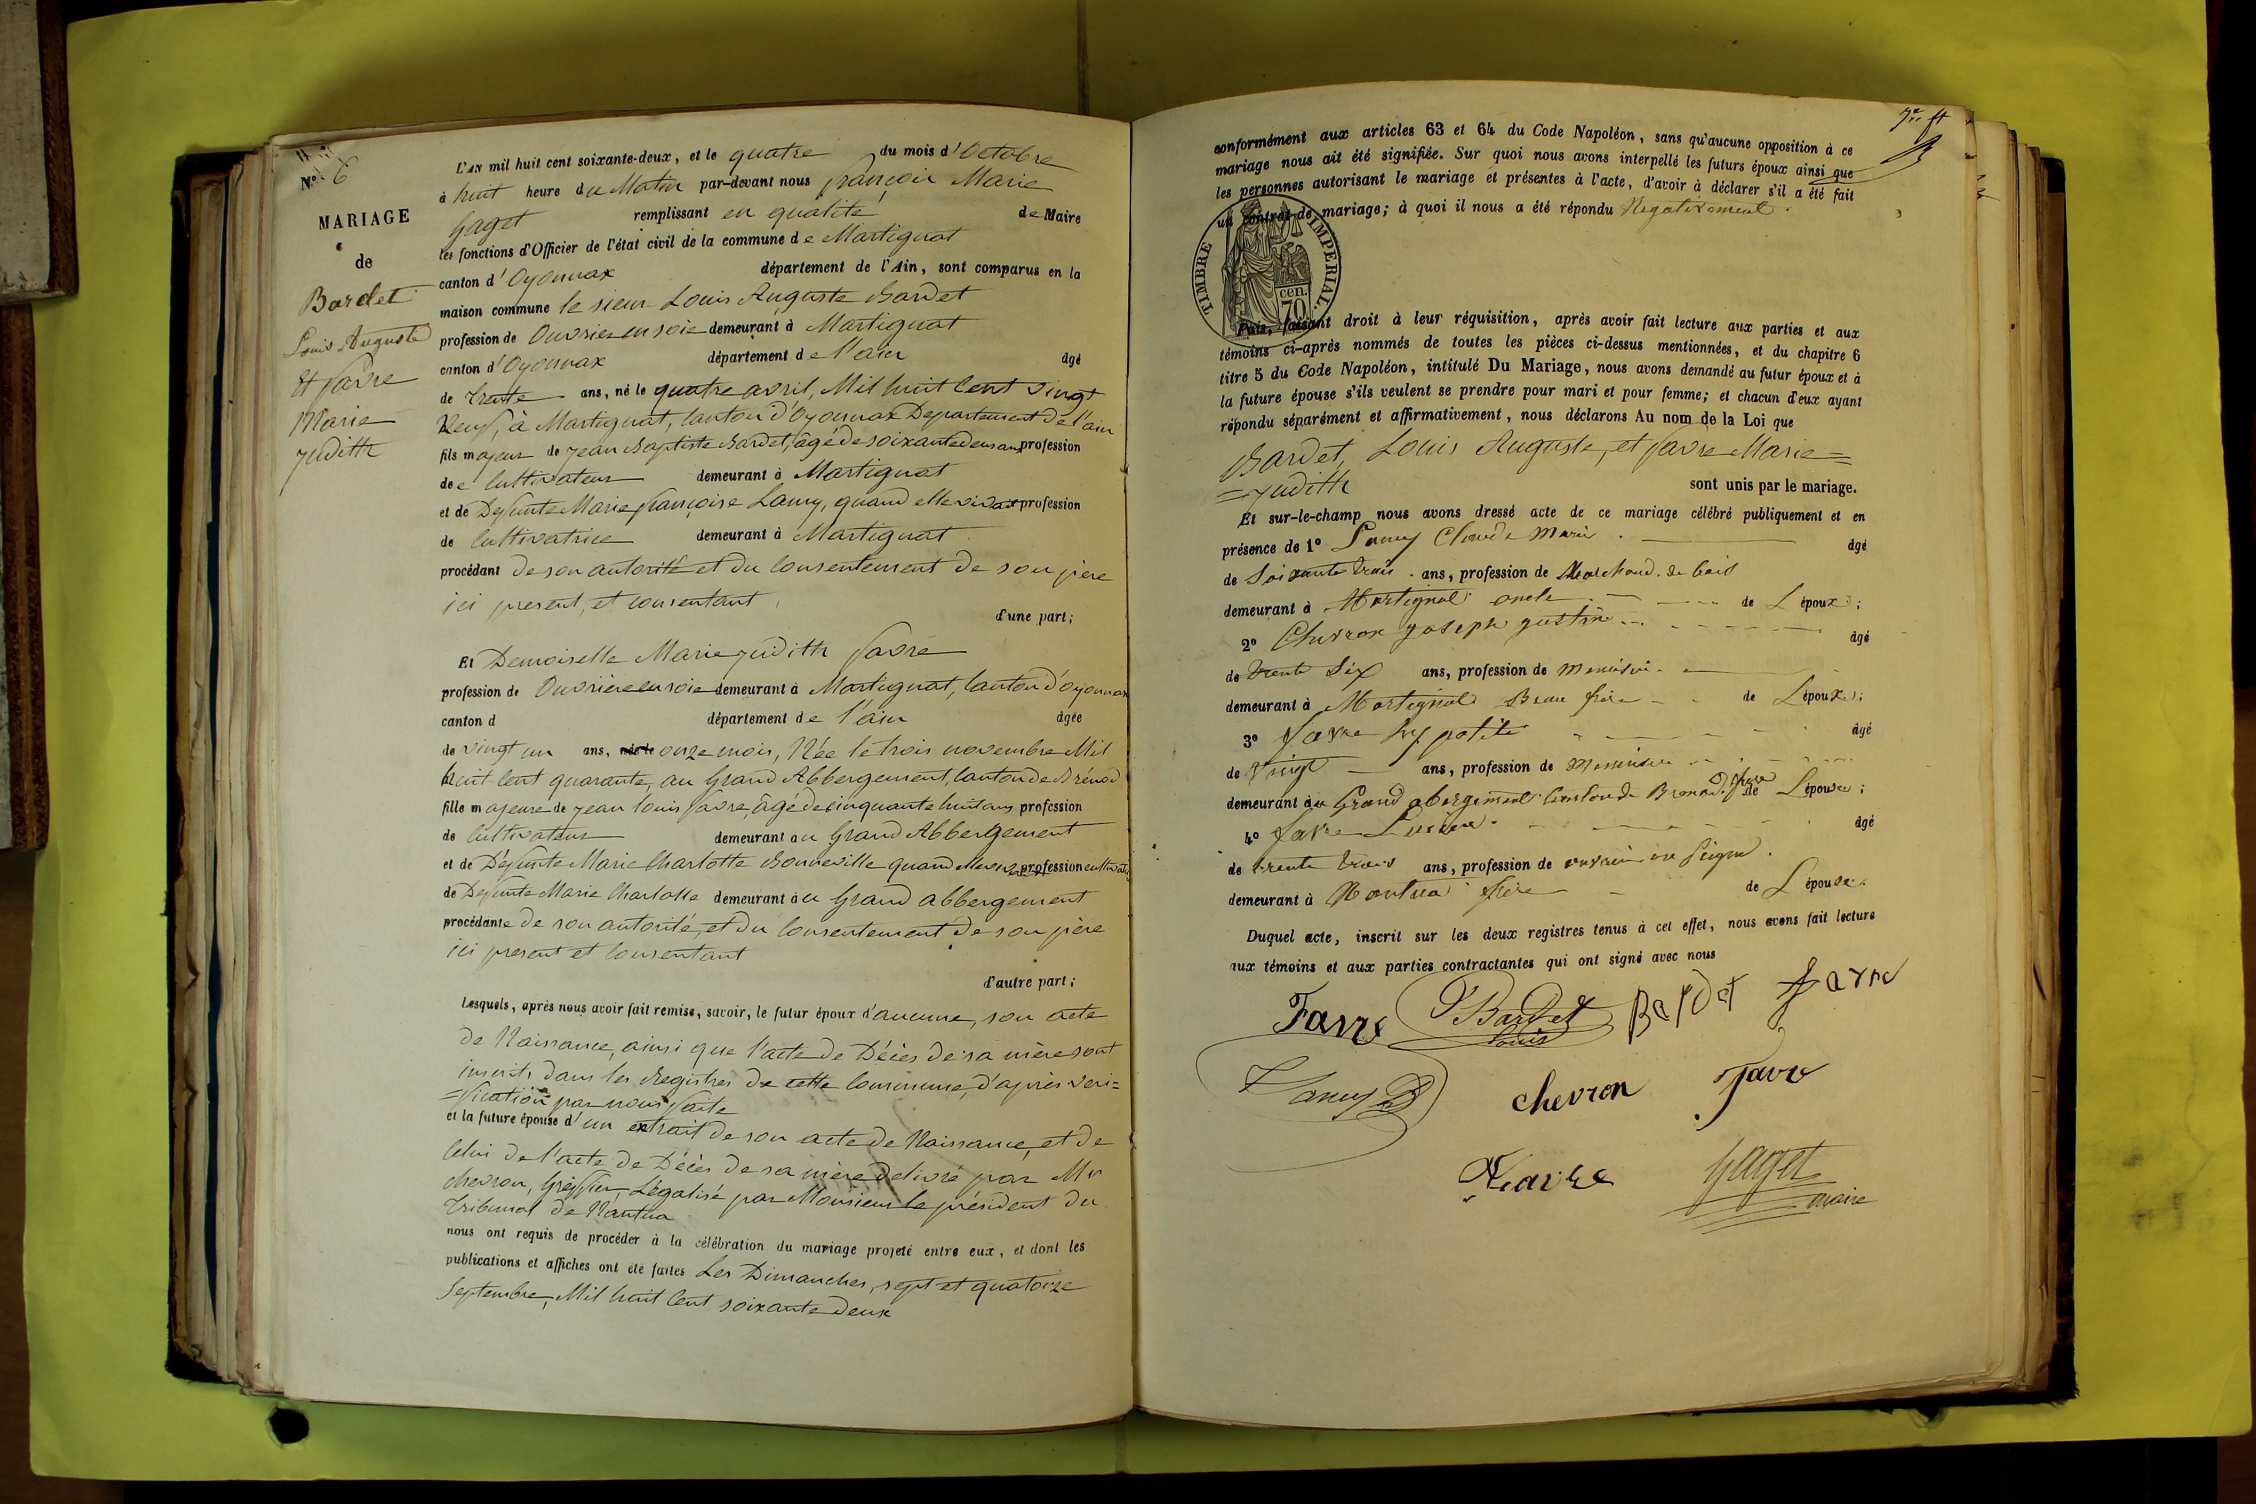 N° 6
MARIAGE
de
Bardet
Louis Auguste
et favre
Marie
judith
L'AN mil huit cent soixante-deux, et le quatre du mois d'Octobre
à huit heure du Matin par-devant nous françois Marie
Gaget remplissant en qualité de Maire
les fonctions d'Officier de l'état civil de la commune de Martignat
canton d'Oyonnax département de l'Ain, sont comparus en la
maison commune le sieur Louis Auguste Bardet
profession de Ouvrier en soie demeurant à Martignat
canton d'Oyonnax département de l'ain âgé
de trente ans, né le quatre avril, Mil huit Cent vingt
Neuf, à Martignat, Canton d'Oyonnax Departement de l'ain
fils majeur de jean Baptiste Bardet, âgé de soixante deux ans profession
de Cultivateur demeurant à Martignat
et de Defunte Marie françoise Lamy, quand elle vivait profession
de Cultivatrice demeurant à Martignat
procédant de son autorité et du Consentement de son père
ici present, et consentant d'une part;
Et Demoiselle Marie judith favre
profession de Ouvrière en soie demeurant à Martignat, Canton d'oyonnax
canton d département de l'ain âgée
de vingt un ans, onze mois, Née le trois novembre Mil
huit Cent quarante, au Grand Abbergement, Canton de Brénod
fille majeure de jean Louis favre, âgé de cinquante huit ans profession
de Cultivateur demeurant au Grand Abbergement
et de Défunte Marie Charlotte Bonneville quand elle vivait profession cultivatrice
de Defunte Marie Charlotte demeurant au Grand abbergement
procédante de son autorité, et du Consentement de son père
ici present et Consentant
d'autre part;
Lesquels, après nous avoir fait remise, savoir, le futur époux d'aucune, son acte
de Naissance, ainsi que l'acte de Décès de sa mère sont
inscrits dans les Registres de cette Commune, d'après veri=
=fication par nous faite
et la future épouse d'un extrait de son acte de Naissance, et de
Celui de l'acte de Décès de sa mère delivré par Mr
chevron, Greffier, Légalisé par Monsieur le président du
Tribunal de Nantua
nous ont requis de procéder à la célébration du mariage projeté entre eux, et dont les
publications et affiches ont été faites Les Dimanches, sept et quatorze
Septembre, Mil huit Cent soixante deux
conformément aux articles 63 et 64 du Code Napoléon, sans qu'aucune opposition à ce
mariage nous ait été signifiée. Sur quoi nous avons interpellé les futurs époux ainsi que
les personnes autorisant le mariage et présentes à l'acte, d'avoir à déclarer s'il a été fait
un contrat de mariage; à quoi il nous a été répondu Negativement.
TIMBRE IMPERIAL.
cen.
70
Puis, faisant droit à leur réquisition, après avoir fait lecture aux parties et aux
témoins ci-après nommés de toutes les pièces ci-dessus mentionnées, et du chapitre 6
titre 5 du Code Napoléon, intitulé Du Mariage, nous avons demandé au futur époux et à
la future épouse s'ils veulent se prendre pour mari et pour femme; et chacun d'eux ayant
répondu séparément et affirmativement, nous déclarons Au nom de la Loi que
Bardet, Louis Auguste, et favre Marie=
=judith sont unis par le mariage.
Et sur-le-champ nous avons dressé acte de ce mariage célébré publiquement et en
présence de 1° Lamy Claude Marie âgé
de Soixante trois ans, profession de Marchand de bois
demeurant à Martignat oncle de L'époux;
2° Chevron joseph justin âgé
de trente Six ans, profession de menuisier
demeurant à Martignat Beau frère de L'époux;
3° favre hypolite âgé
de Vingt ans, profession de Menuisier
demeurant au Grand abergement Canton de Brenod frère de L'épouse;
4° favre Lucien âgé
de trente trois ans, profession de ouvrier en peigne
demeurant à Nantua frère de L'épouse.
Duquel acte, inscrit sur les deux registres tenus à cet effet, nous avons fait lecture
aux témoins et aux parties contractantes qui ont signé avec nous
Favre Bardet Louis Bardet favre
Lamy chevron favre
favre Gaget
maire